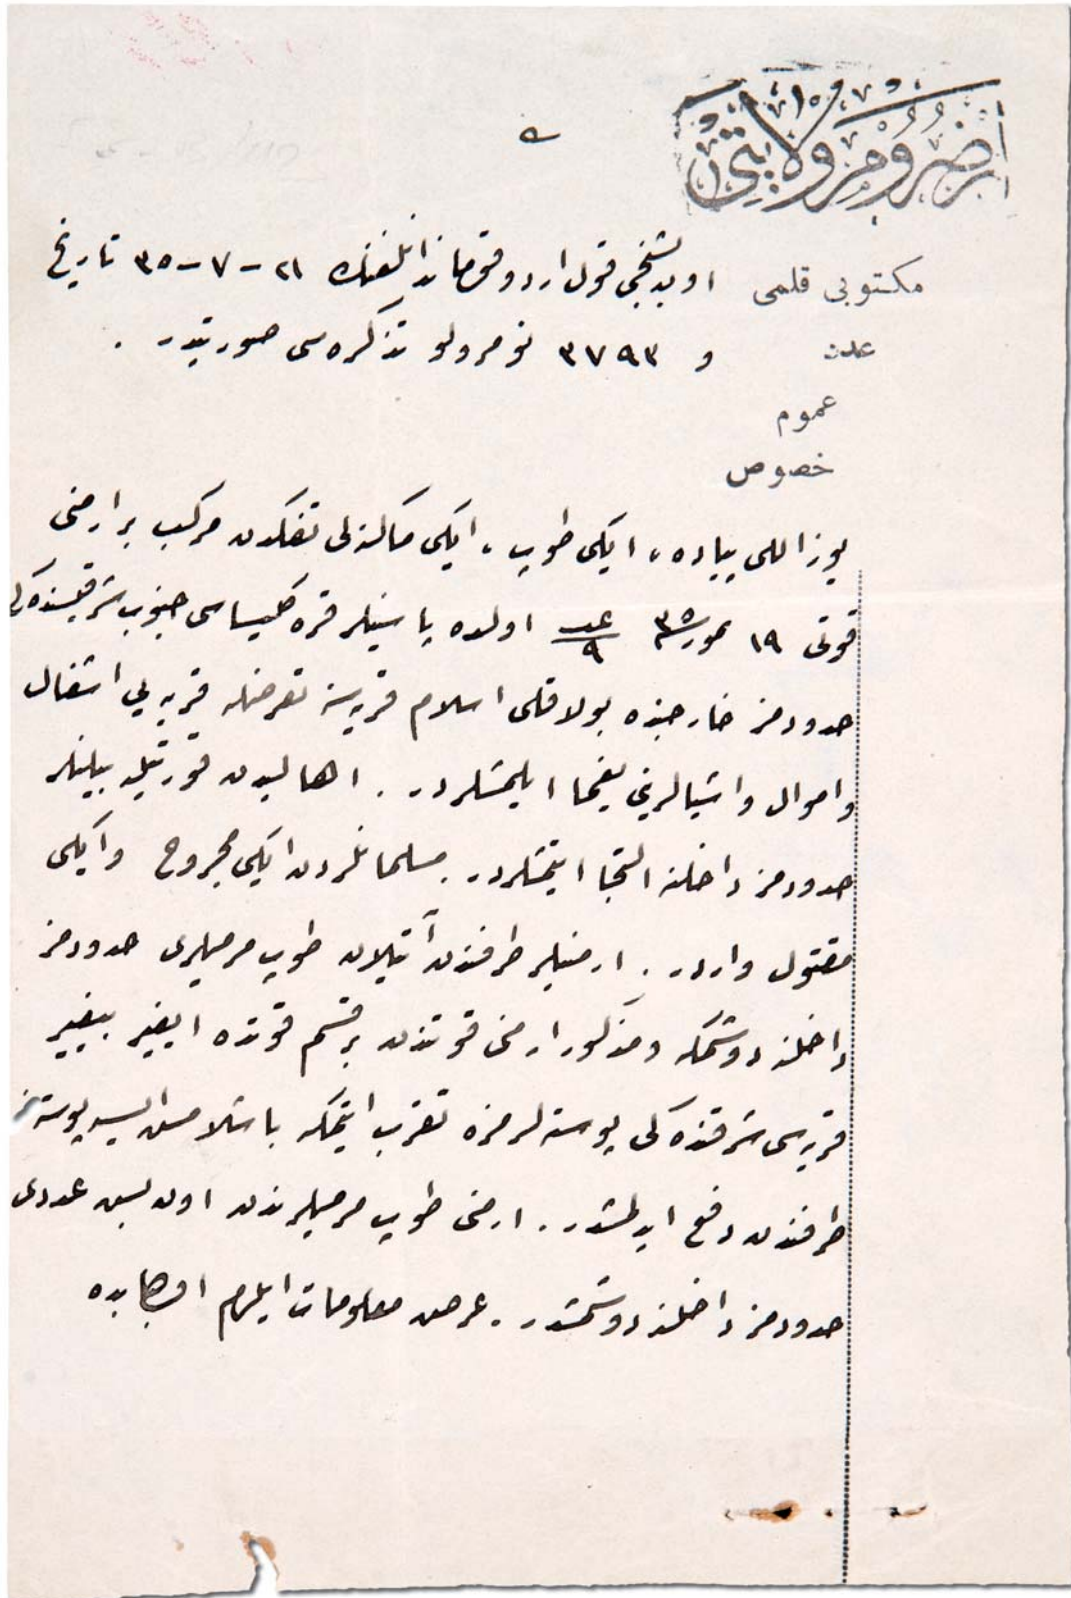 ارضروم ولايتى
٥
مكتوبى قلمى
عدد
عموم
خصوص
اون بشنجى قول اردو قوماندانلغنك ٢١-٧-٣٥ تاريخ
و ٣٧٩٣ نومرولو تذكره سى صورتيدر .
يوز اللى پياده ، ايكى طوپ ، ايكى ماكنه لى تفنكدن مركب بر ارمنى
قوتى ١٩ تموز ٣٥ ٩ اولده پاسينلر قره كليساسى جنوب شرقيسنده كى
حدودمز خارجنده بولاقلى اسلام قريه سنه تعرضله قريه يى اشغال
و اموال و اشيالرينى يغما ايلمشلردر . اهاليدن قورتيله بيلنلر
حدودمز داخلنه التجا ايتمشلردر . مسلمانلردن ايكى مجروح و ايكى
مقتول واردر . ارمنيلر طرفندن آتيلان طوپ مرميلرى حدودمز
داخلنه دوشمكه و مذكور ارمنى قوتندن بر قسم قوتده
قريه سى شرقنده كى پوسته لرمزه تقرب ايتمكه باشلامش ايسه ده پوسته
طرفندن دفع ايدلمشدر . ارمنى طوپ مرميلرندن اون بش عددى
حدودمز داخلنه دوشمشدر . عرض معلومات ايلرم